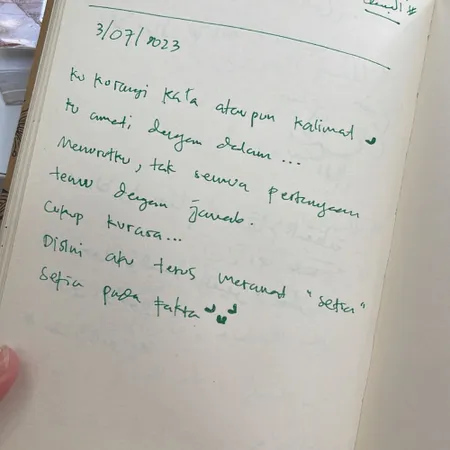 3/07/2023
ku kurangi kata ataupun kalimat
ku amati, dengan dalam ...
Menurutku, tak semua pertanyaan
temu dengan jawab.
Cukup kurasa...
Disini aku terus merawat "setia"
Setia pada Fakta